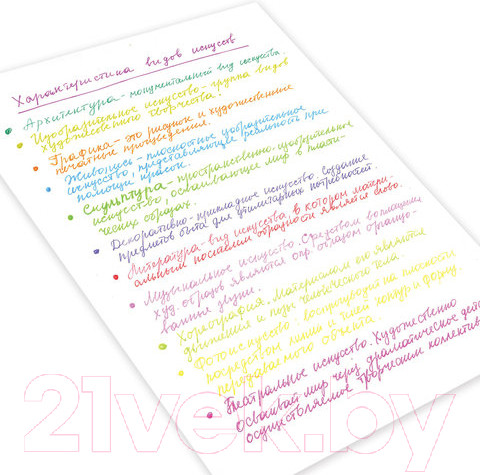 Характеристика видов искусств
Архитектура - монументальный вид искусства.
Изобразительное искусство - группа видов
художественного творчества.
Графика - это рисунок и художественные
печатные произведения.
Живопись - плоскостное изобразительное
искусство, представляющее реальность при
помощи красок.
Скульптура - пространственно-изобразительное
искусство, осваивающее мир в пласти-
ческих образах.
Декоративно-прикладное искусство. Создание
предметов быта для утилитарных потребностей.
Литература - вид искусства, в котором матери-
альным носителем образности является слово.
Музыкальное искусство. Средством воплощения
худ. образов являются опр. образом организо-
ванные звуки.
Хореография. Материалом ею являются
движения и позы человеческого тела
Фотоискусство: воспроизводит на плоскости
посредством линии и тени контур и форму
передаваемого объекта.
Театральное искусство. Художественно
осваивает мир через драматическое дейс
осуществляемое творческим коллектив
21vek.by